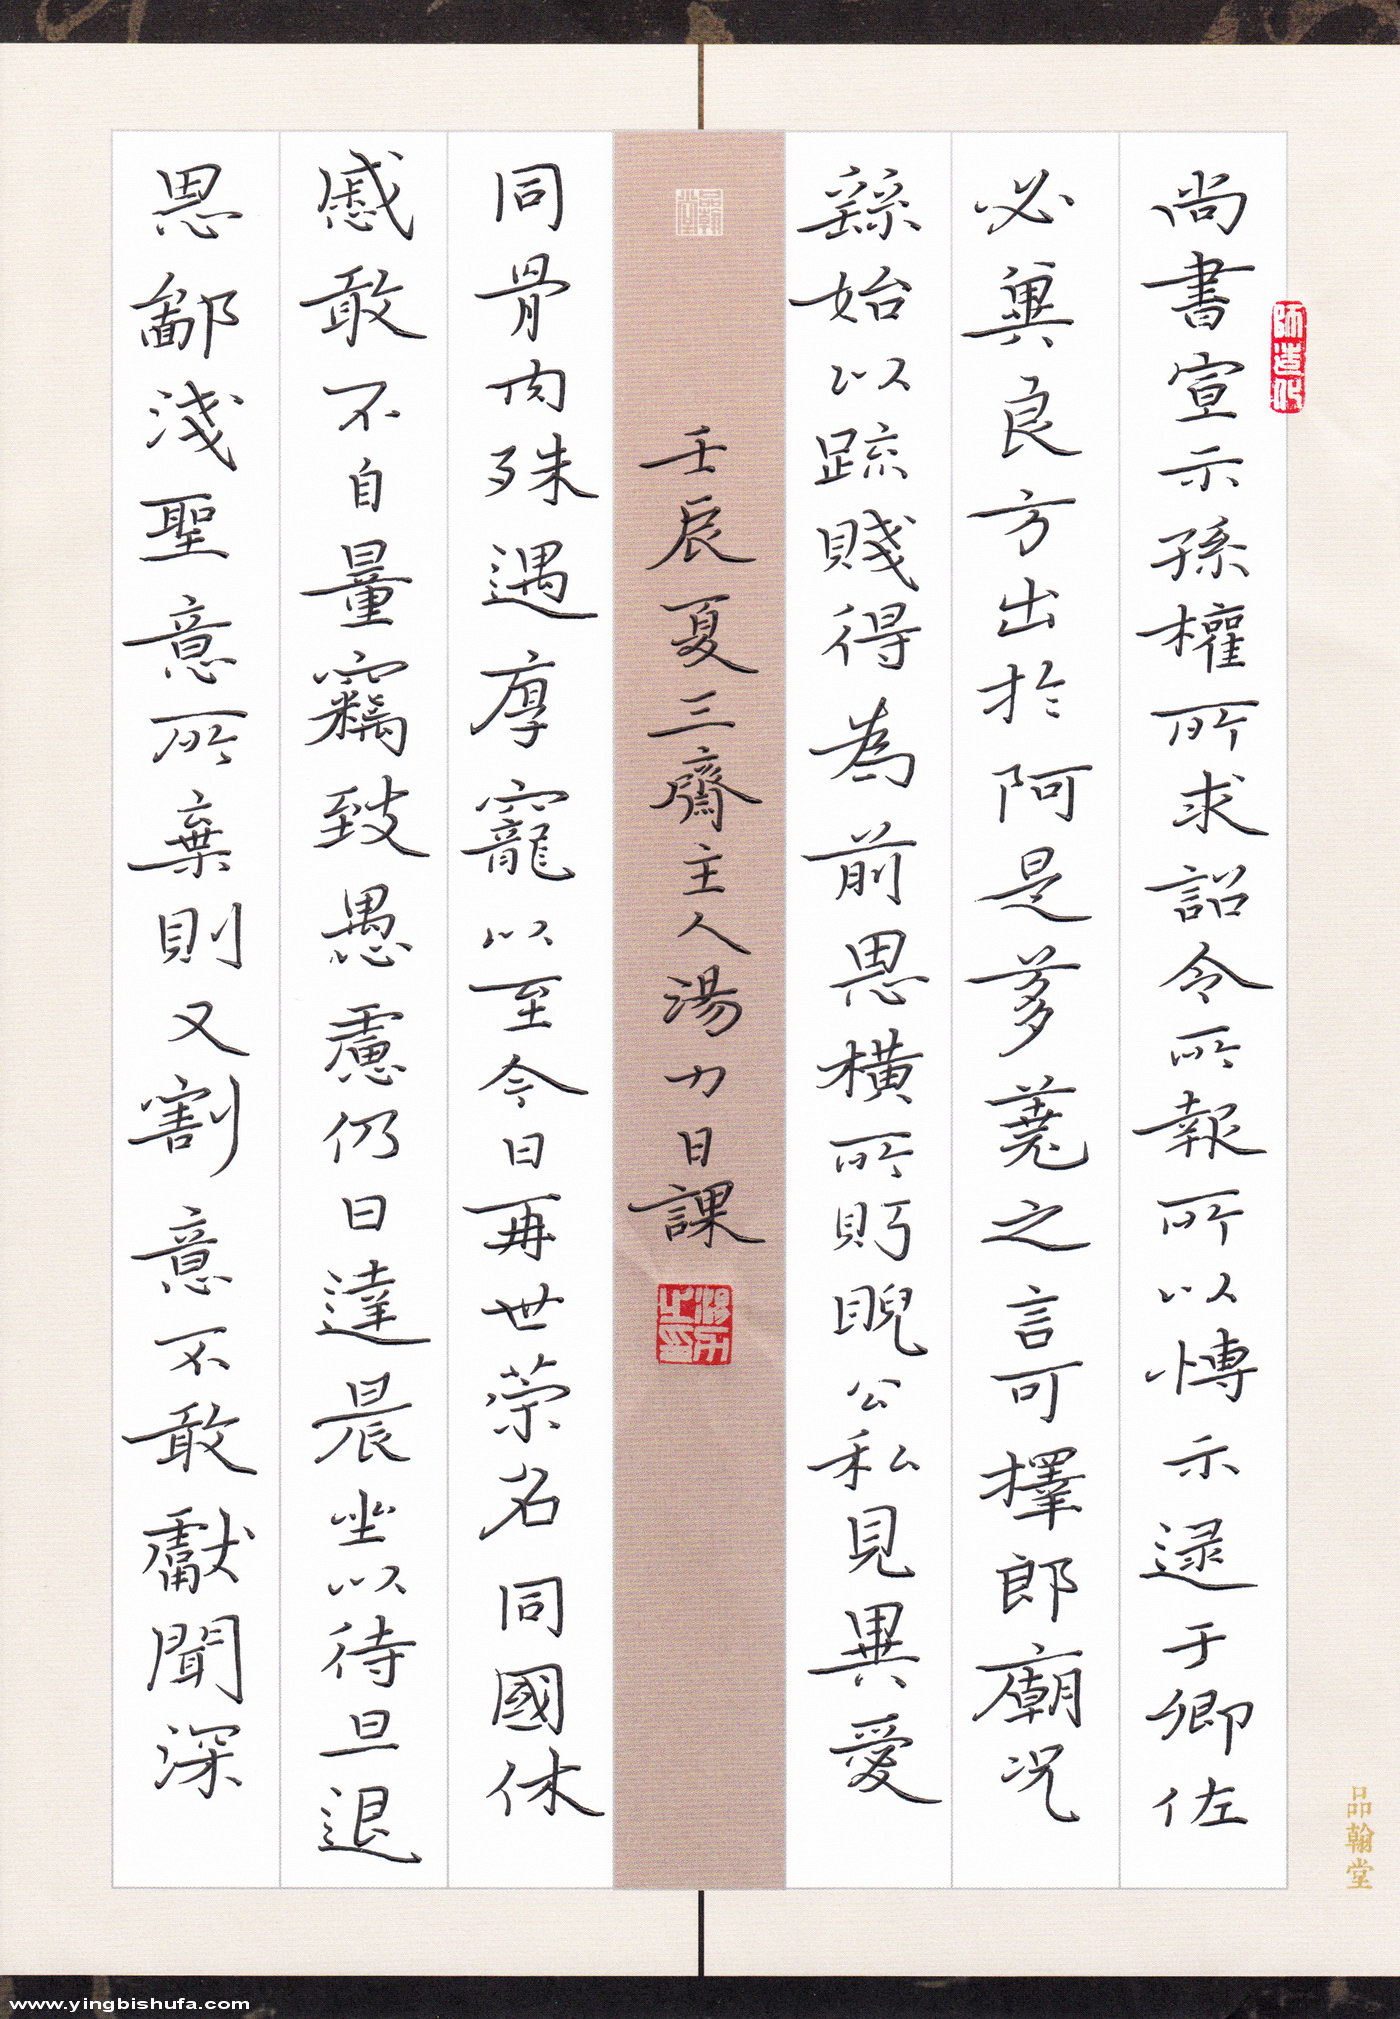 尚書宣示孫權所求詔令所報所以博示逯于卿佐
必兾良方出於阿是芻蕘之言可擇郎廟况
繇始以踈賤得為前恩橫所眄睨公私見異愛
壬辰夏三齋主人湯力日課
同骨肉殊遇厚寵以至今日再世荣名同國休
慼敢不自量竊致愚慮仍日達晨坐以待旦退
思鄙淺聖意所棄則又割意不敢獻聞深
師造化
品翰堂
www.yingbishufa.com